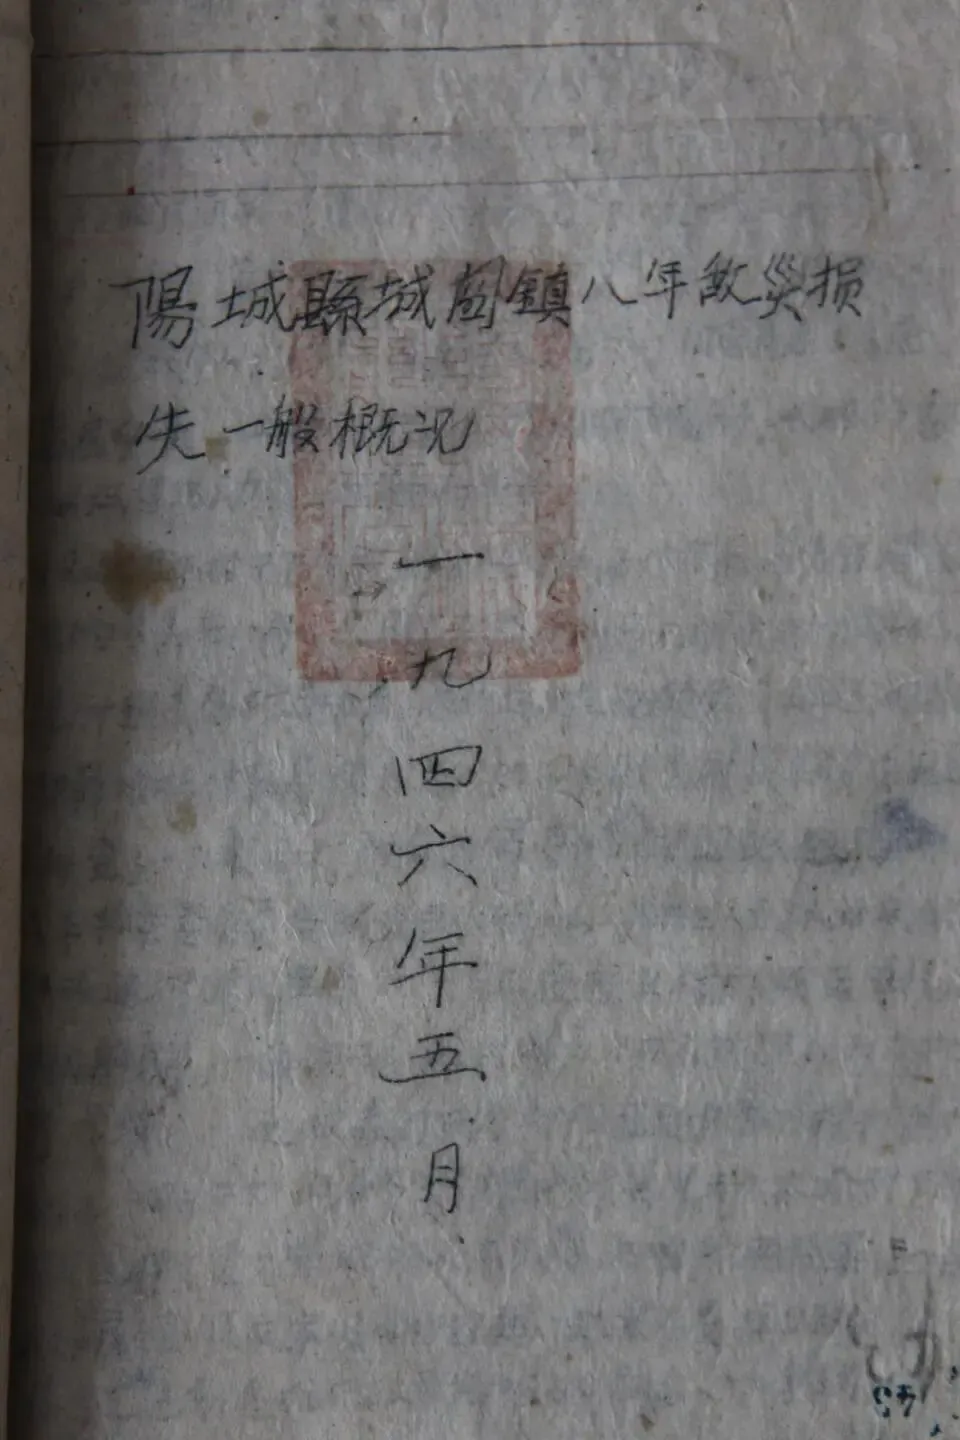 陽城縣城関鎮八年敌災损
失一般概况
一
九
四
六
年
五
月